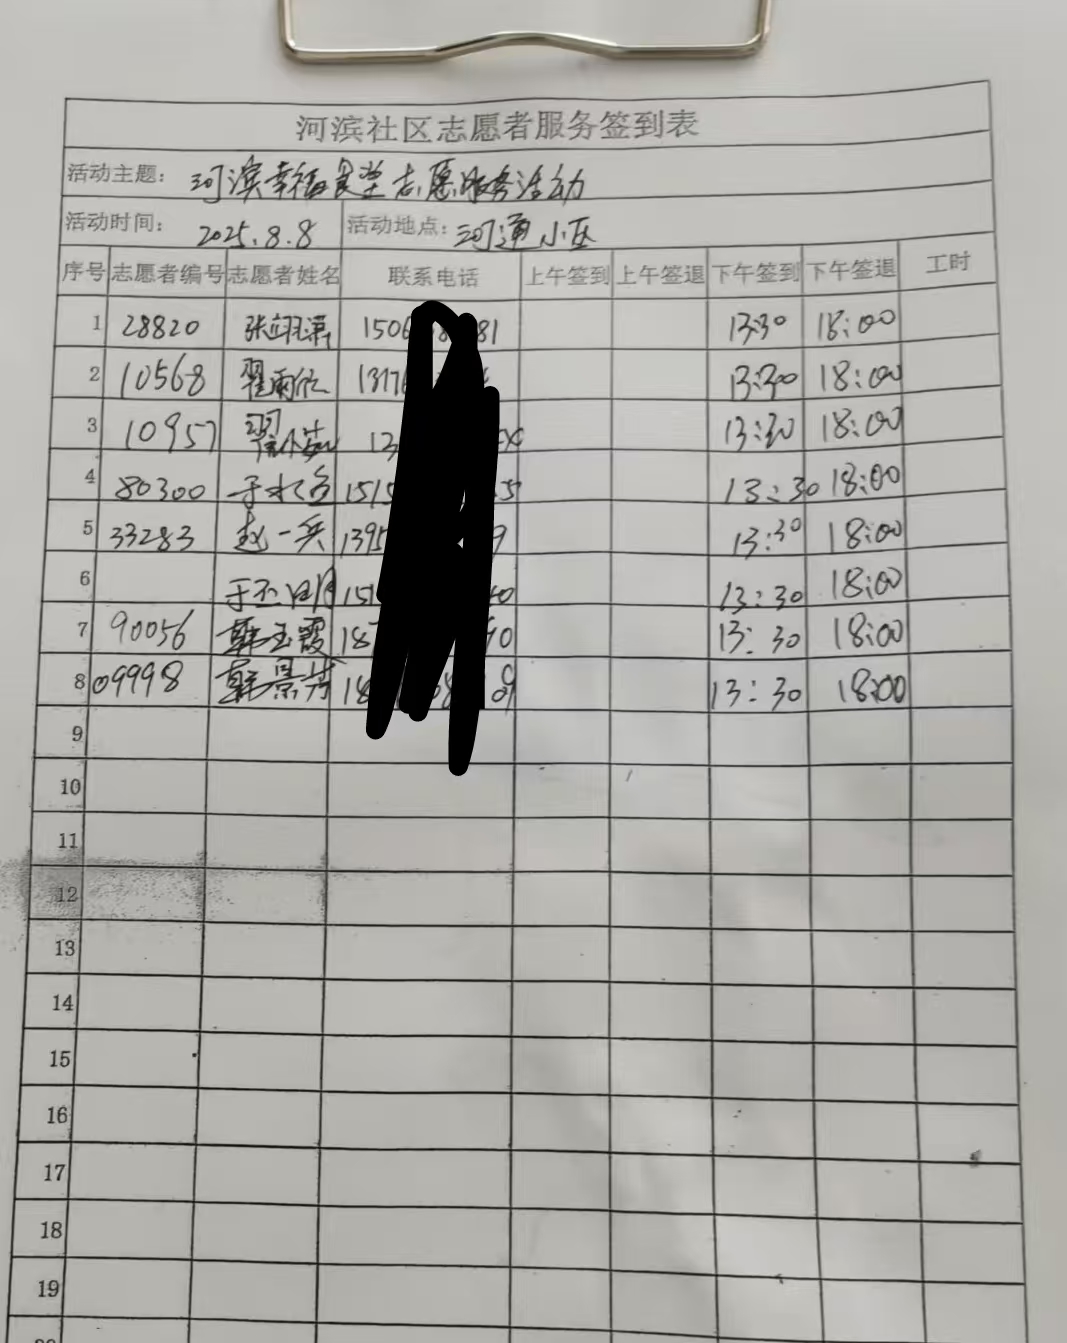 河滨社区志愿者服务签到表
活动主题： 河滨幸福食堂志愿服务活动
活动时间： 2025.8.8 活动地点： 河通小区
序号 志愿者编号 志愿者姓名 联系电话 上午签到 上午签退 下午签到 下午签退 工时
1 28820 张翊 1506 81 13:30 18:00
2 10568 翟雨欣 1317 13:30 18:00
3 10957 13 13:30 18:00
4 80300 于 1515 5 13:30 18:00
5 33283 赵一兵 1395 9 13:30 18:00
6 于丕明 151 0 13:30 18:00
7 90056 韩玉霞 187 90 13:30 18:00
8 09998 韩景芳 18 09 13:30 18:00
9
10
11
12
13
14
15
16
17
18
19